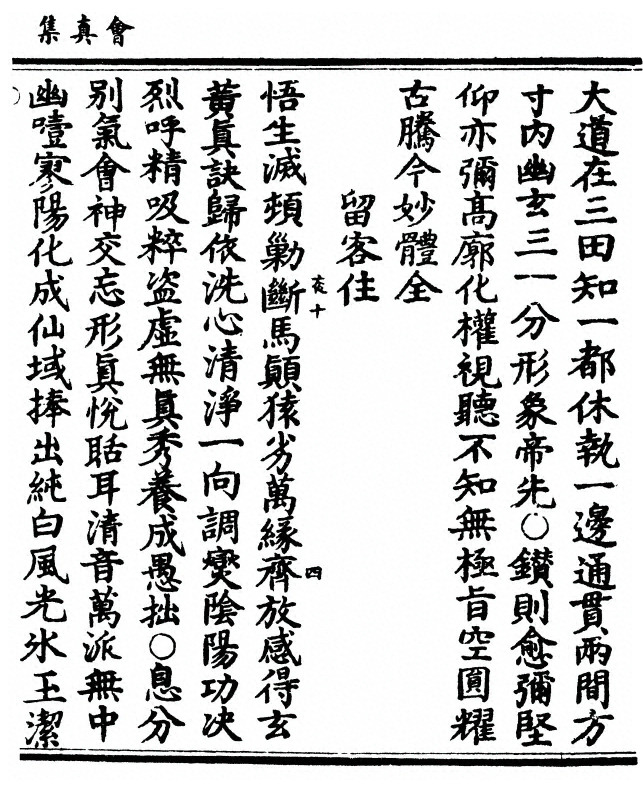 會真集
大道在三田知一都休執一邊通貫兩間方
寸內幽玄三一分形象帝先○鑚則愈彌堅
仰亦彌高廓化權視聽不知無極旨空圓耀
古騰今妙體全
留客住
夜十
四
悟生滅頓勦斷馬顛猿劣萬緣齊放感得玄
黃真訣歸依洗心清淨一向調爕陰陽功决
烈呼精吸粹盗虛無真秀養成愚拙○息分
别氣會神交忘形真恱聒耳清音萬派無中
幽噎寥陽化成仙域捧出純白風光氷玉潔
○